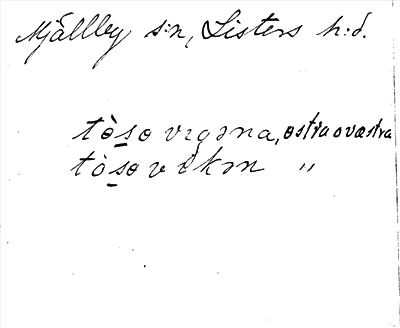 Mjällby s:n, Listers h:d.
tòso vıgəna, östra o västra
tòso vikən "